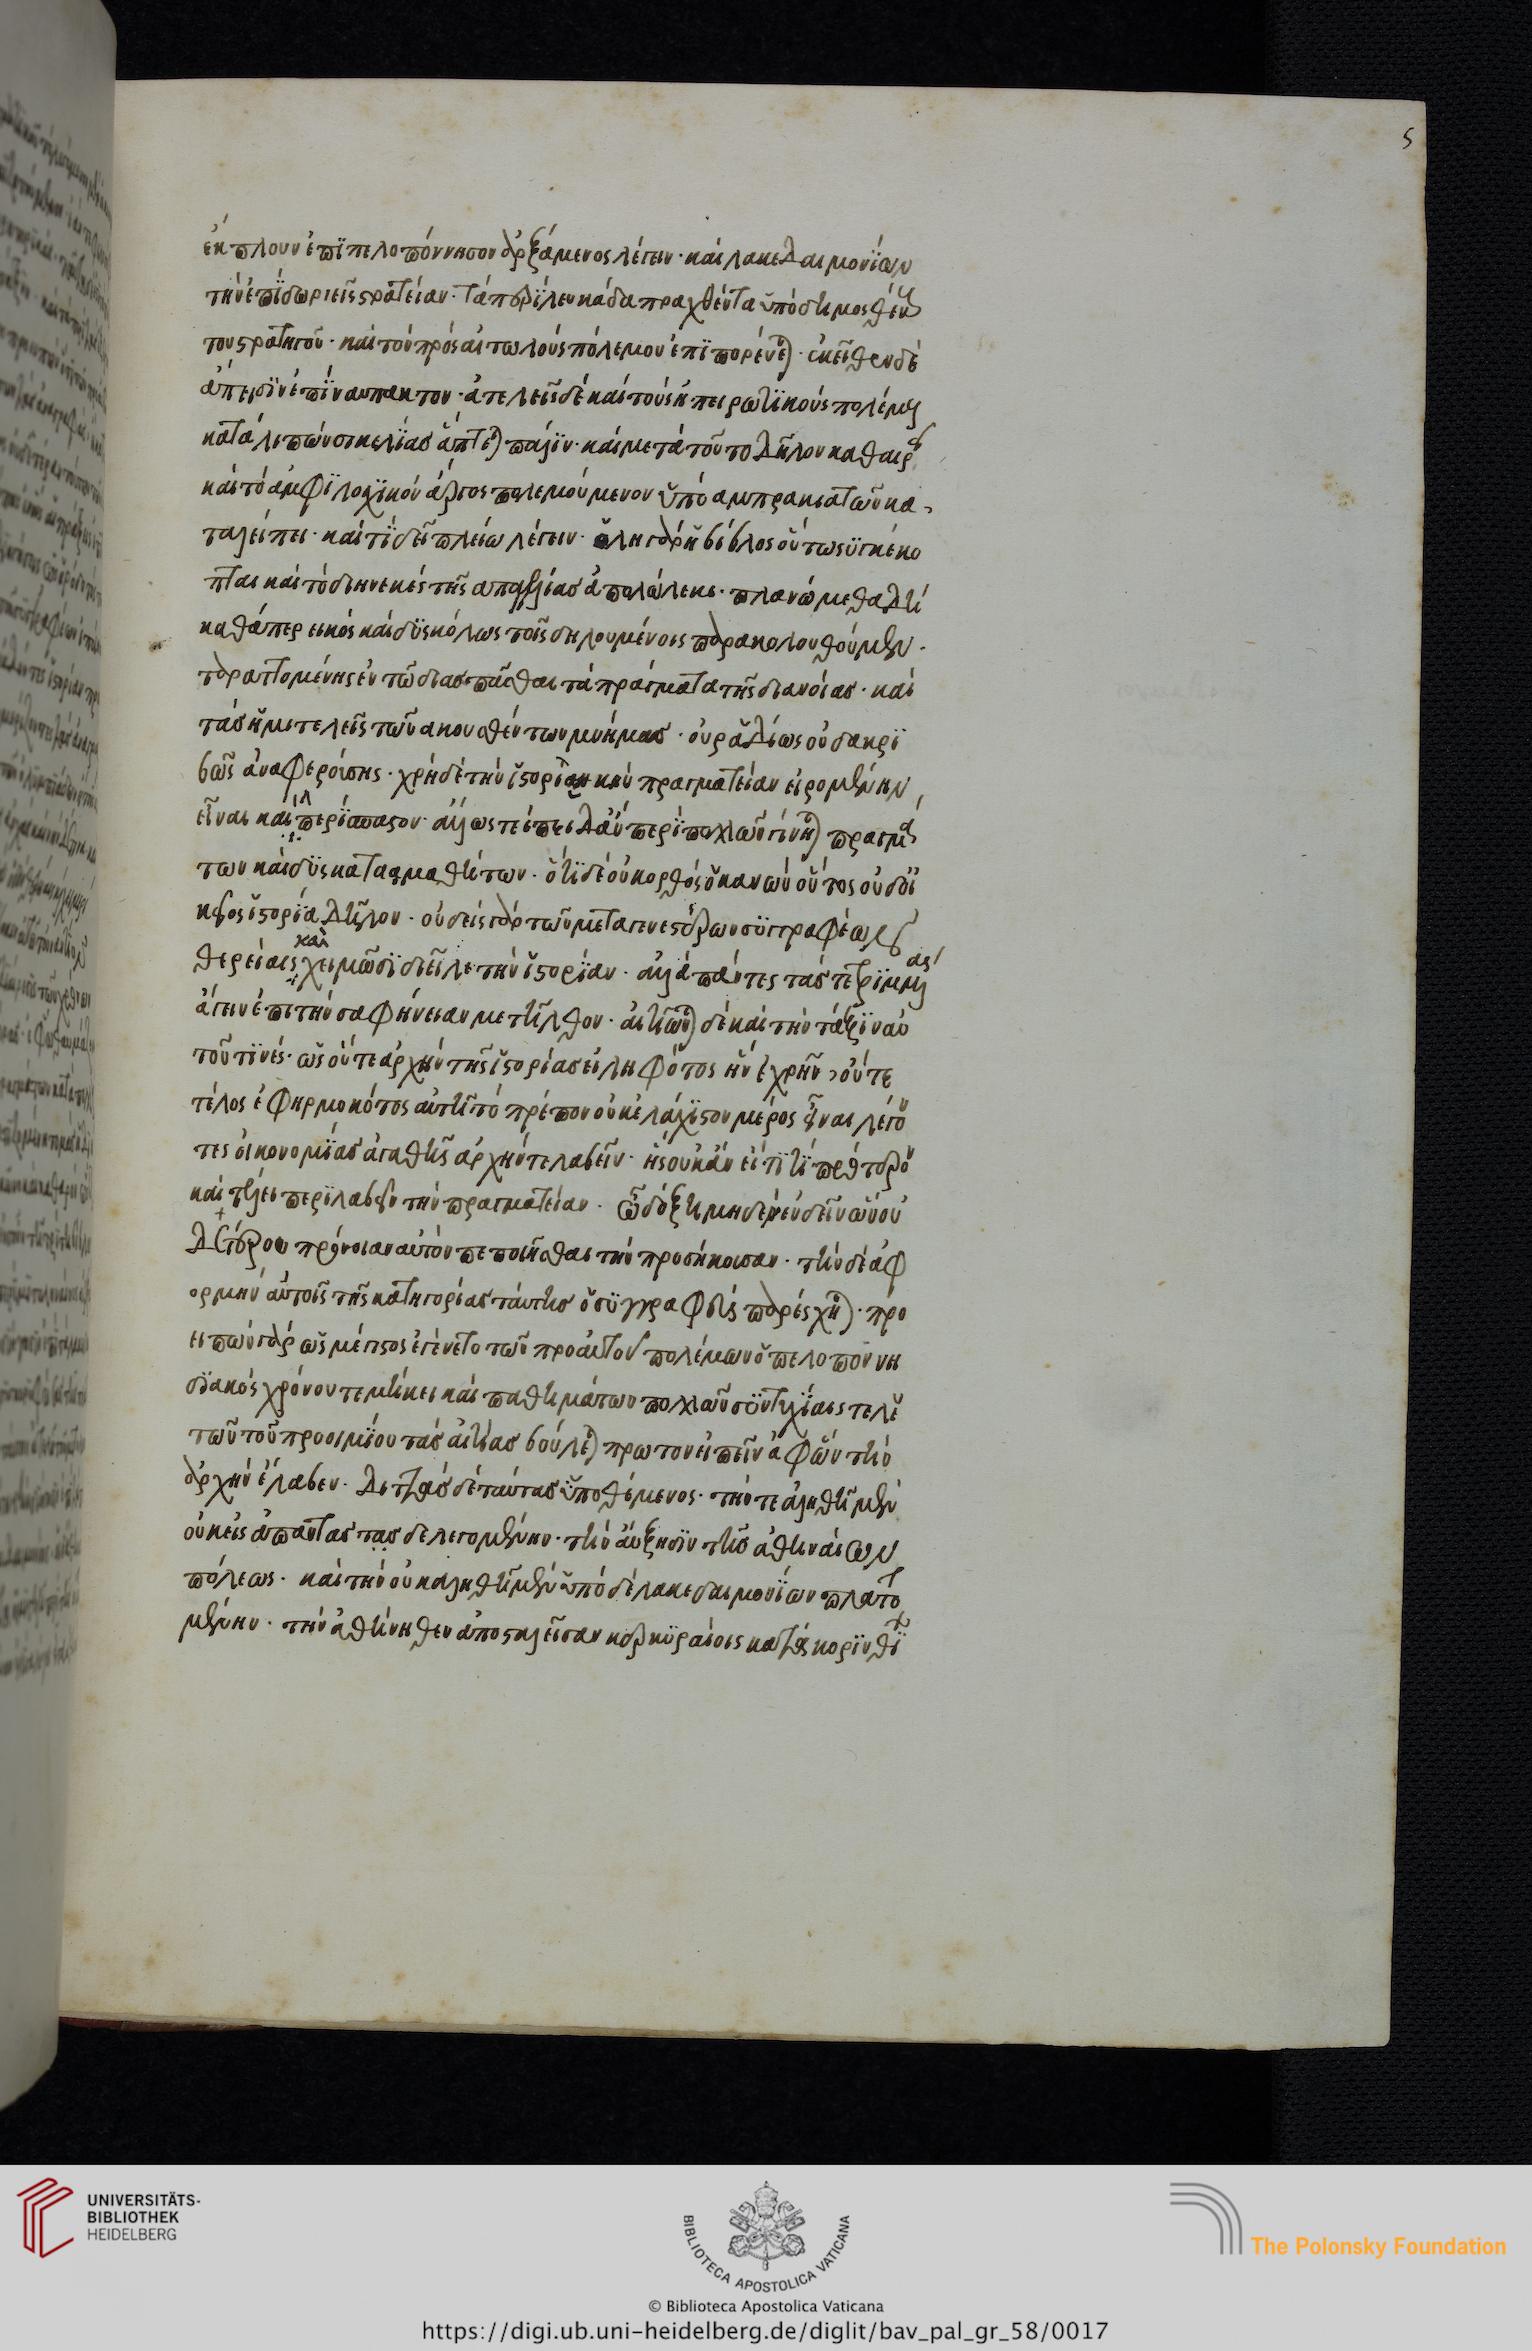 ἐκπλουν ἐπϊ πελοπόννησον ἀρξάμενος λέγειν· καὶ λακεδαιμονΐων
τὴν ἐπϊ δωριεῖς στρατείαν· τὰ περϊ λευκάδα πραχθέντα ὑπὸ δημοσθέν
του στρατηγοῦ· καὶ τὸν πρὸς αἰτωλοὺς πόλεμον ἐπϊπορέυεται· ἐκεῖθεν δὲ
ἄπεισϊν ἐπϊ ναυπακτον· ἀτελεῖς δὲ καὶ τοὺς ἠπειρωτϊκοὺς πολέμους
καταλιπὼν σικελϊας ἅπτεται πάλϊν· καὶ μετὰ τοῦτο δῆλον καθαιρ
καὶ τὸ ἀμφϊλοχϊκὸν ἄργος πολεμούμενον ὑπὸ αμπρακιατῶν κα-
ταλείπει· καὶ τϊ δεῖ πλείω λέγειν· ὅλη γὰρ ἡ βίβλος οὕτω συγκέκο
πται καὶ τὸ διηνεκὲς τῆς απαγγελίας ἀπολώλεκε· πλανώμεθα δὴ
καθάπερ εικὸς καὶ δϋσκόλως τοῖς δηλουμένοις παρακολουθοῦμεν·
ταραττομένης ἐν τῶ διασπᾶσθαι τὰ πράγματα τῆς διανοίας· καὶ
τὰς ἡμιτελεῖς τῶν ακουσθέντων μνήμας· οὐ ραδίως οὐδ ακρϊ
βῶς ἀναφερούσης· χρὴ δὲ τὴν ἱστορϊκὴν πραγματείαν εἰρομένην
εἶναι καὶ ἀπερϊσπαστον· ἄλλως τε ἐπειδὰν περϊ πολλῶν γίνηται πραγμά
των καὶ δϋσκαταμαθήτων· ὅτϊ δὲ οὐκ ορθὸς ὁ κανὼν οὗτος οὐδ οϊ
κεῖος ἱστορϊα δῆλον· οὐδεὶς γὰρ τῶν μεταγενεστέρων συγγραφέων
θερείαις καὶ χειμῶσϊ διεῖλε τὴν ἱστορϊαν· αλλὰ πάντες τὰς τετρϊμμένας
ἄγειν ἐπι τὴν σαφήνειαν μετῆλθον· αἰτιῶνται δὲ καὶ τὴν τάξϊν αὐ
τοῦ τϊνές· ὡς οὔτε αρχὴν τῆς ἱστορίας εἰληφότος ἣν ἐχρῆν, οὔτε
τέλος ἐφηρμοκότος αυτῆ τὸ πρέπον οὐκ ἐλάχϊστον μέρος εἶναι λέγον
τες οἰκονομϊας ἀγαθῆς αρχήν τε λαβεῖν· ἧς οὐκ ἂν εἴη τϊ πρότερον
καὶ τέλει περϊλαβεῖν τὴν πραγματείαν· ᾧ δόξει μηδὲν ἐνδεῖν ὧν οὐ
δετέρου πρόνοιαν αὐτὸν πεποιῆσθαι τὴν προσήκουσαν· τὴν δὲ ἀφ
ορμὴν αὐτοῖς τῆς κατηγορίας ταύτης ὁ συγγραφεὺς παρέσχηται· προ
ειπὼν γὰρ ὡς μέγιστος ἐγένετο τῶν προ αυτοῦ πολέμων ὁ πελοποννη
σϊακὸς χρόνου τε μήκει καὶ παθημάτων πολλῶν συντυχΐαις τελευ
τῶν τοῦ προοιμίου τὰς αἰτίας βούλεται πρωτον εἰπεῖν ἀφ ὧν τὴν
ἀρχὴν ἔλαβεν. διττὰς δὲ ταύτας ὑποθέμενος· τήν τε ἀληθῆ μὲν
οὐκ εἰς ἅπαντας τας δε λεγομένην· τὴν ἄυξησϊν τῆς ἀθηναίων
πόλεως· καὶ τὴν οὐκ αληθῆ μὲν ὑπὸ δὲ λακεδαιμονΐων πλαττο
μένην· τὴν ἀθήνηθεν ἀποσταλεῖσαν κερκϋραίοις κατὰ κορϊνθϊ
5
UNIVERSITÄTS-
BIBLIOTHEK
HEIDELBERG
BIBLIOTECA APOSTOLICA VATICANA
The Polonsky Foundation
© Biblioteca Apostolica Vaticana
https://digi.ub.uni-heidelberg.de/diglit/bav_pal_gr_58/0017